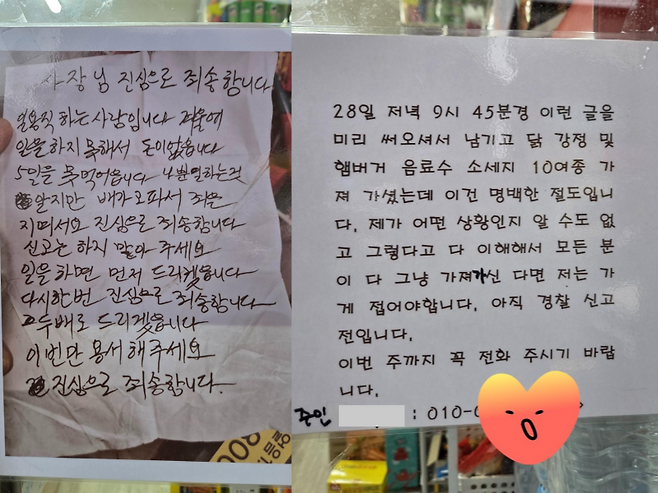 사장님 진심으로 죄송합니다
일용직 하는 사람입니다 겨울에
일을하지 못해서 돈이없읍니다
5일을 못먹어읍니다 나뿐일하는것
알지만 배가고파서 죄를
지며서요 진심으로 죄송합니다
신고는 하지 말아 주세요
일을하면 먼저 드리겠읍니다
다시한번 진심으로 죄송합니다
두배로 드리겟읍니다
이번만 용서해주세요
진심으로 죄송합니다.
28일 저녁 9시 45분경 이런 글을
미리 써오셔서 남기고 닭 강정 및
햄버거 음료수 소세지 10여종 가
져 가셨는데 이건 명백한 절도입니
다. 제가 어떤 상황인지 알 수도 없
고 그렇다고 다 이해해서 모든 분
이 다 그냥 가져가신 다면 저는 가
게 접어야합니다. 아직 경찰 신고
전입니다.
이번 주까지 꼭 전화 주시기 바랍
니다.
주인 : 010-